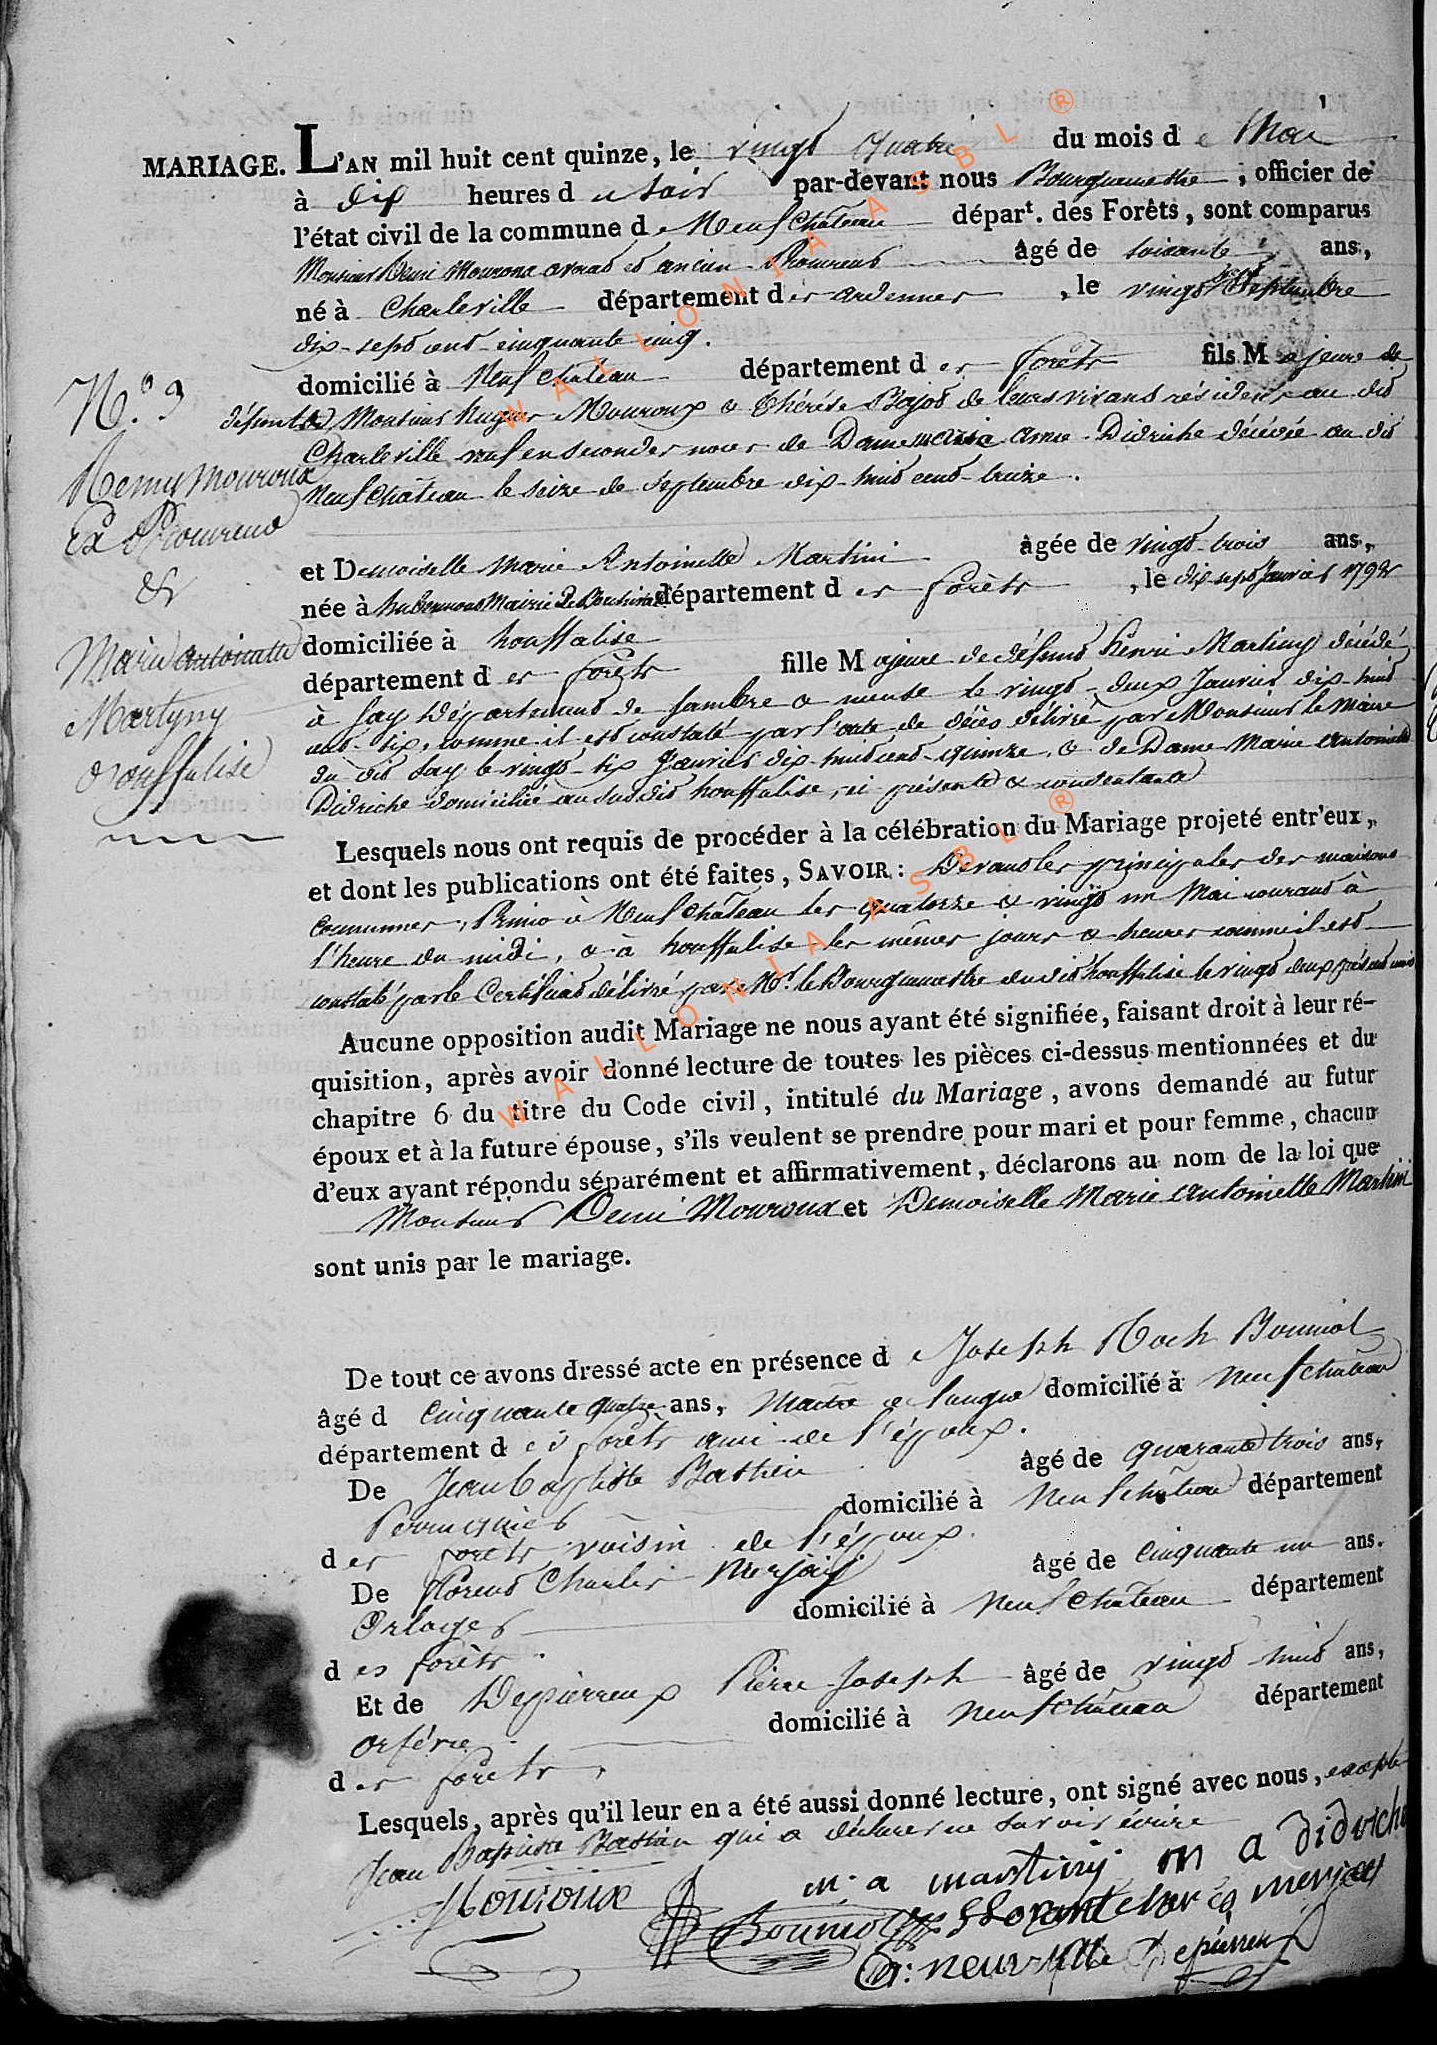 MARIAGE. L'AN mil huit cent quinze, le vingt quatre du mois de Mai
à dix heures du soir par-devant nous Bourguemestre, officier de
l'état civil de la commune de Neufchâteau départ. des Forêts, sont comparus
Monsieur Remi Mouroux avocat et ancien Procureur âgé de soixante ans,
né à Charleville département des ardennes, le vingt Septembre
dix-sept cent cinquante cinq.
domicilié à Neufchâteau département des forêts fils Majeure de
défunts Monsieur Hugues Mouroux & Thérése Bajot de leurs vivans résidens au dit
Charleville veuf en secondes noces de Dame maria anne Didriche décédée au dit
Neufchâteau le seize de Septembre dix-huit cent-treize.
N.° 9
Remy Mouroux
Ex Procureur
&
Marie antoinette
Martyny
d'ouffalise
et Demoiselle Marie Antoinette Martini âgée de vingt-trois ans,
née à département des forêts, le dix sept Janvier 1792
domiciliée à houffalise
département des forêts fille Majeure de défunt henri Martiny décédé
à fay Département de Sambre & meuse le vingt-deux Janvier dix-huit
cent-six, comme il est constaté par l'acte de décès délivré par Monsieur le Maire
du dit fay le vingt-six Janvier dix-huit cent-quinze, & de Dame Marie Antoinette
Didriche domiciliée au susdit houffalise, ici présente & consentante
Lesquels nous ont requis de procéder à la célébration du Mariage projeté entr'eux,
et dont les publications ont été faites, SAVOIR : Devant les principales des maisons
communes, Primo à Neufchâteau les quatorze & vingt un Mai courant à
l'heure du midi, & à houffalise les mêmes jours & heures comme il est
constaté par le Certificat délivré par Mr. le Bourguemestre du dit houffalise le vingt deux présent mois
Aucune opposition audit Mariage ne nous ayant été signifiée, faisant droit à leur ré-
quisition, après avoir donné lecture de toutes les pièces ci-dessus mentionnées et du
chapitre 6 du titre du Code civil, intitulé du Mariage, avons demandé au futur
époux et à la future épouse, s'ils veulent se prendre pour mari et pour femme, chacun
d'eux ayant répondu séparément et affirmativement, déclarons au nom de la loi que
Monsieur Remi Mouroux et Demoiselle Marie Antoinette Martini
sont unis par le mariage.
De tout ce avons dressé acte en présence de Joseph Roch Bouniol
âgé d cinquante quatre ans, Maitre de langue domicilié à Neufchâteau
département des forêts ami de l'époux.
De Jean baptiste Bastien âgé de quarante trois ans,
Perruquier domicilié à Neufchâteau département
des forêts voisin de l'époux.
De florent Charles Merjay âgé de cinquante un ans.
Orloger domicilié à Neufchâteau département
des forêts.
Et de Depierreux Pierre Joseph âgé de vingt huit ans,
orfévre domicilié à Neufchâteau département
des forêts,
Lesquels, après qu'il leur en a été aussi donné lecture, ont signé avec nous, excepté
Jean Baptiste Bastien qui a déclaré ne savoir écrire
Mouroux m. a martiny m a didriche
Bouniol florent char es merjay
Depierreux
WALLONIA ASBL ®
WALLONIA ASBL ®